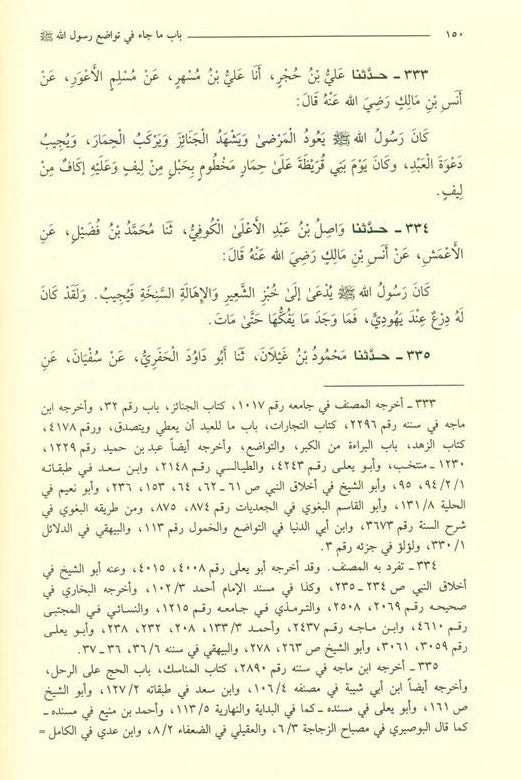 ١٥٠ ـــــــ باب ما جاء في تواضع رسول الله ﷺ
٣٣٣ ـ حدَّثنا عَليُّ بْنُ حُجْرٍ، أَنَا عَليُّ بْنُ مُسْهِرٍ، عَنْ مُسْلِمٍ الأَعْوَرِ، عَنْ
أَنَسِ بْنِ مَالِكٍ رَضِيَ الله عَنْهُ قَالَ:
كَانَ رَسُولُ الله ﷺ يَعُودُ الْمَرْضىٰ وَيَشْهَدُ الْجَنَائِزَ وَيَرْكَبُ الْحِمَارَ، وَيُجِيبُ
دَعْوَةَ الْعَبْدِ، وكَانَ يَوْمَ بَنِي قُرَيْظَةَ عَلَىٰ حِمَارٍ مَخْطُومٍ بِحَبْلٍ مِنْ لِيفٍ وَعَلَيْهِ إكَافٌ مِنْ
لِيفٍ.
٣٣٤ ـ حدَّثنا وَاصِلُ بْنُ عَبْدِ الأَعْلَىٰ الْكُوفِيُّ، ثَنَا مُحَمَّدُ بْنُ فُضَيْلٍ، عَنِ
الأَعْمَشِ، عَنْ أَنَسِ بْنِ مَالِكٍ رَضِيَ الله عَنْهُ قَالَ:
كَانَ رَسُولُ الله ﷺ يُدْعَىٰ إلَىٰ خُبْزِ الشَّعِيرِ وَالإهَالَةِ السَّنِخَةِ فَيُجِيبُ. وَلَقَدْ كَانَ
لَهُ دِرْعٌ عِنْدَ يَهُودِيٍّ، فَمَا وَجَدَ مَا يَفُكُّهَا حَتَّىٰ مَاتَ.
٣٣٥ ـ حدَّثنا مَحْمُودُ بْنُ غَيْلَانَ، ثَنَا أَبُو دَاوُدَ الْحَفَرِيُّ، عَنْ سُفْيَانَ، عَنِ
٣٣٣ ـ أخرجه المصنف في جامعه رقم ١٠١٧، كتاب الجنائز، باب رقم ٣٢، وأخرجه ابن
ماجه في سننه رقم ٢٢٩٦، كتاب التجارات، باب ما للعبد أن يعطي ويتصدق، ورقم ٤١٧٨،
كتاب الزهد، باب البراءة من الكبر، والتواضع، وأخرجه أيضاً عبد بن حميد رقم ١٢٢٩،
١٢٣٠ ـ منتخب، وأبو يعلى رقم ٤٢٤٣، والطيالسي رقم ٢١٤٨، وابن سعد في طبقاته
١/ ٢/ ٩٤، ٩٥، وأبو الشيخ في أخلاق النبي ص ٦١ ـ ٦٢، ٦٤، ١٥٣، ٢٣٦، وأبو نعيم في
الحلية ٨/ ١٣١، وأبو القاسم البغوي في الجعديات رقم ٨٧٤، ٨٧٥، ومن طريقه البغوي في
شرح السنة رقم ٣٦٧٣، وابن أبي الدنيا في التواضع والخمول رقم ١١٣، والبيهقي في الدلائل
١/ ٣٣٠، ولؤلؤ في جزئه رقم ٣.
٣٣٤ ـ تفرد به المصنف. وقد أخرجه أبو يعلى رقم ٤٠٠٨، ٤٠١٥، وعنه أبو الشيخ في
أخلاق النبي ص ٢٣٤ ـ ٢٣٥، وكذا في مسند الإمام أحمد ٣/ ١٠٢، وأخرجه البخاري في
صحيحه رقم ٢٠٦٩، ٢٥٠٨، والترمذي في جامعه رقم ١٢١٥، والنسائي في المجتبى
رقم ٤٦١٠، وابن ماجه رقم ٢٤٣٧، وأحمد ٣/ ١٣٣، ٢٠٨، ٢٣٢، ٢٣٨، وأبو يعلى
رقم ٣٠٥٩، ٣٠٦١، وأبو الشيخ ص ٢٦٣، ٢٧٨، والبيهقي في سننه ٦/ ٣٦، ٣٦ ـ ٣٧.
٣٣٥ ـ أخرجه ابن ماجه في سننه رقم ٢٨٩٠، كتاب المناسك، باب الحج على الرحل،
وأخرجه أيضاً ابن أبي شيبة في مصنفه ٤/ ١٠٦، وابن سعد في طبقاته ٢/ ١٢٧، وأبو الشيخ
ص ١٦١، وأبو يعلى في مسنده ـ كما في البداية والنهارية ٥/ ١١٣، وأحمد بن منيع في مسنده ـ
كما قال البوصيري في مصباح الزجاجة ٣/ ٦، والعقيلي في الضعفاء ٢/ ٨، وابن عدي في الكامل =